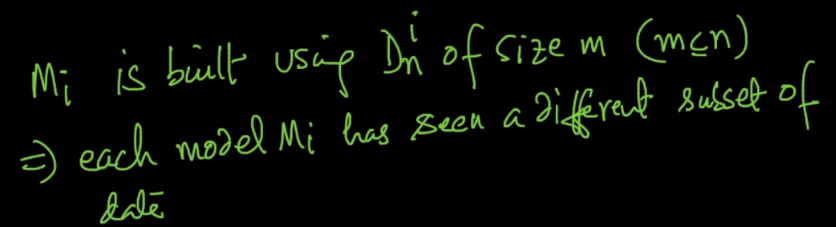 Mi is built using Dn^i of size m (m≤n)
⇒ each model Mi has seen a different subset of
data